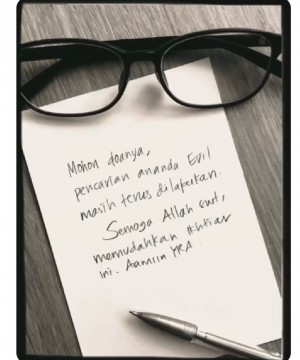 Mohon doanya,
pencarian ananda Eril
masih terus dilakukan.
Semoga Allah swt,
memudahkan Ikhtiar
ini. Aamiin YRA.